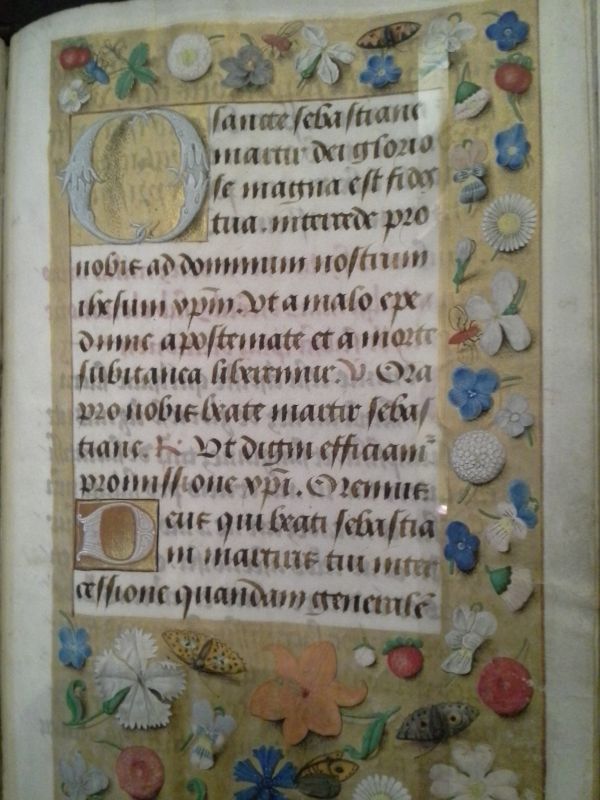 O sancte sebastiane
martir dei glorio
se magna est fides
tua. intercede pro
nobis ad dominum nostrum
ihesum xpm̄. Vt a malo epe
dimie apostemate et a morte
subitanea liberemur. V. Ora
pro nobis beate martir sebas
tiane. R. Vt digni efficiam̄
promissione xpī. Oremus
Deus qui beati sebastia
ni martiris tui inter
cessione quandam generalē